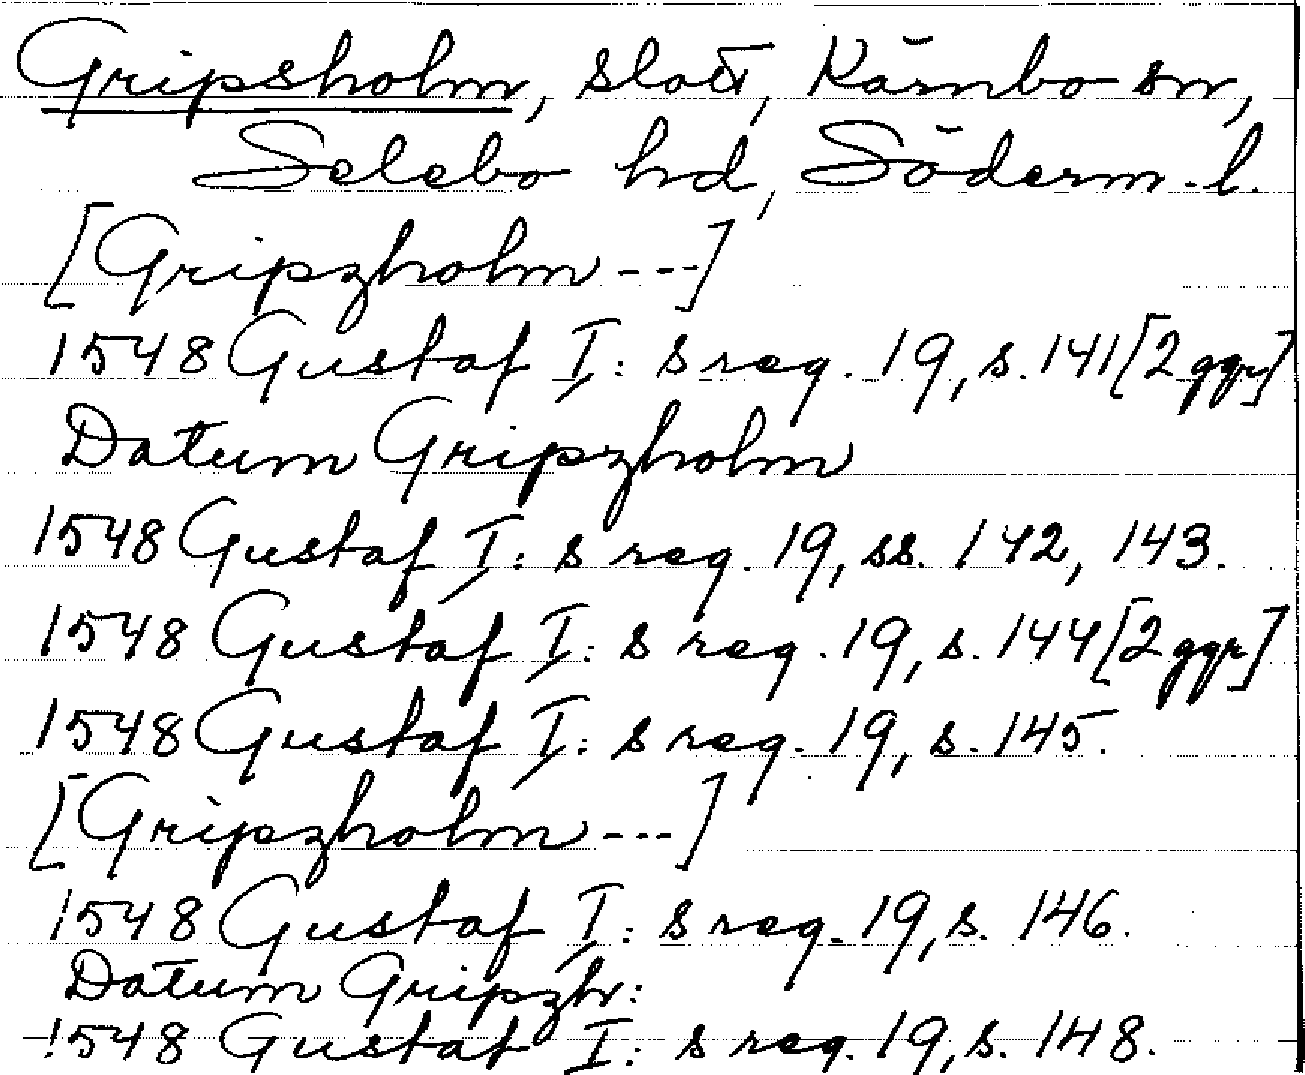 Gripsholm, slott, Kärnbo sn,
Selebo hd, Söderm. l.
[Gripzholm ---]
1548 Gustaf I: s reg. 19, s. 141 [2 ggr]
Datum Gripzholm
1548 Gustaf I: s reg. 19, ss. 142, 143.
1548 Gustaf I: s reg. 19, s. 144 [2 ggr]
1548 Gustaf I: s reg. 19, s. 145.
[Gripzholm ---]
1548 Gustaf I: s reg. 19, s. 146.
Datum Gripzh:
1548 Gustaf I: s reg. 19, s. 148.